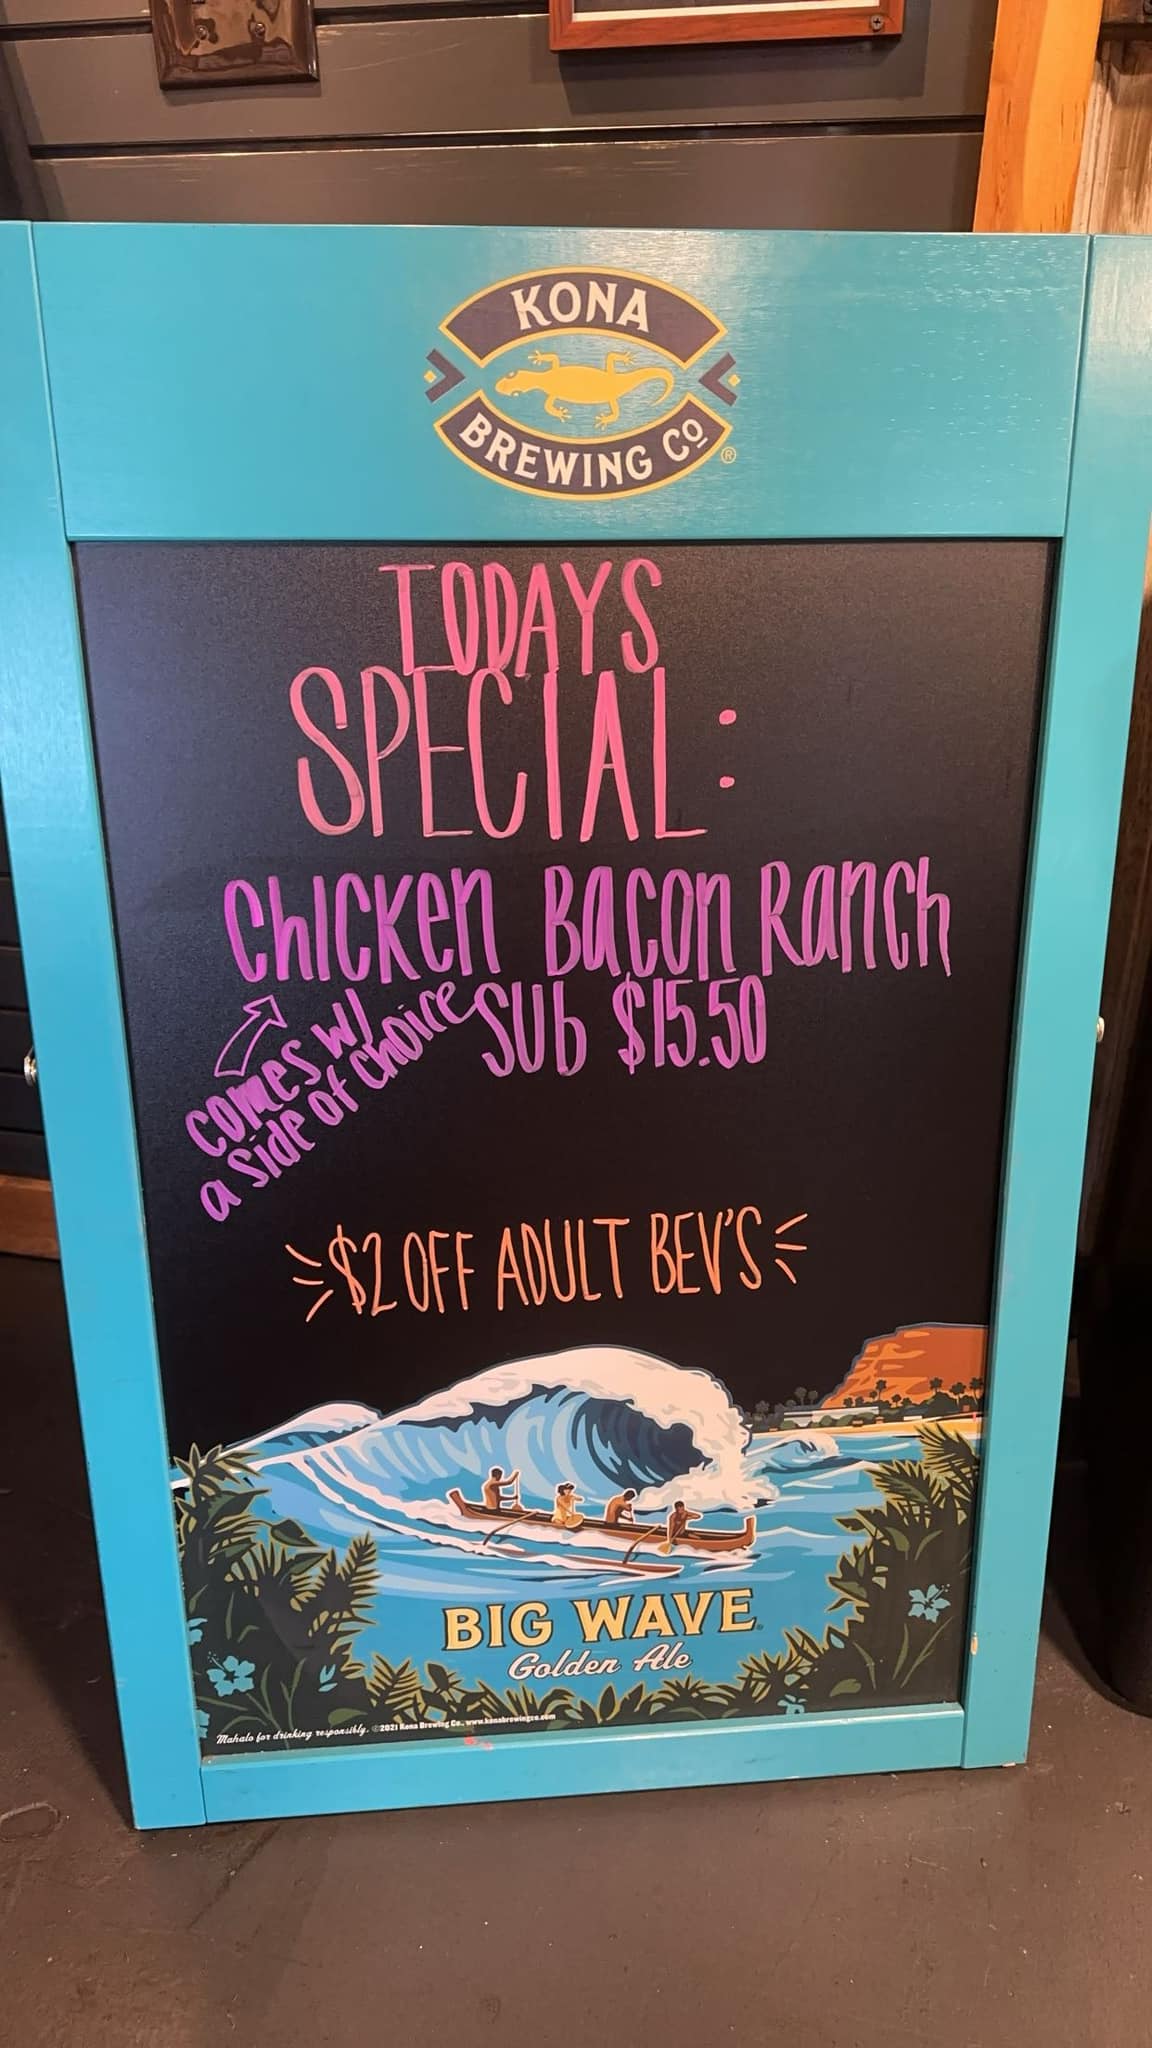 KONA
BREWING Co
®
TODAYS
SPECIAL:
Chicken Bacon Ranch
Sub $15.50
comes w/
a side of choice
$2 OFF ADULT BEV'S
BIG WAVE
Golden Ale
Mahalo for drinking responsibly. ©2021 Kona Brewing Co., www.konabrewingco.com